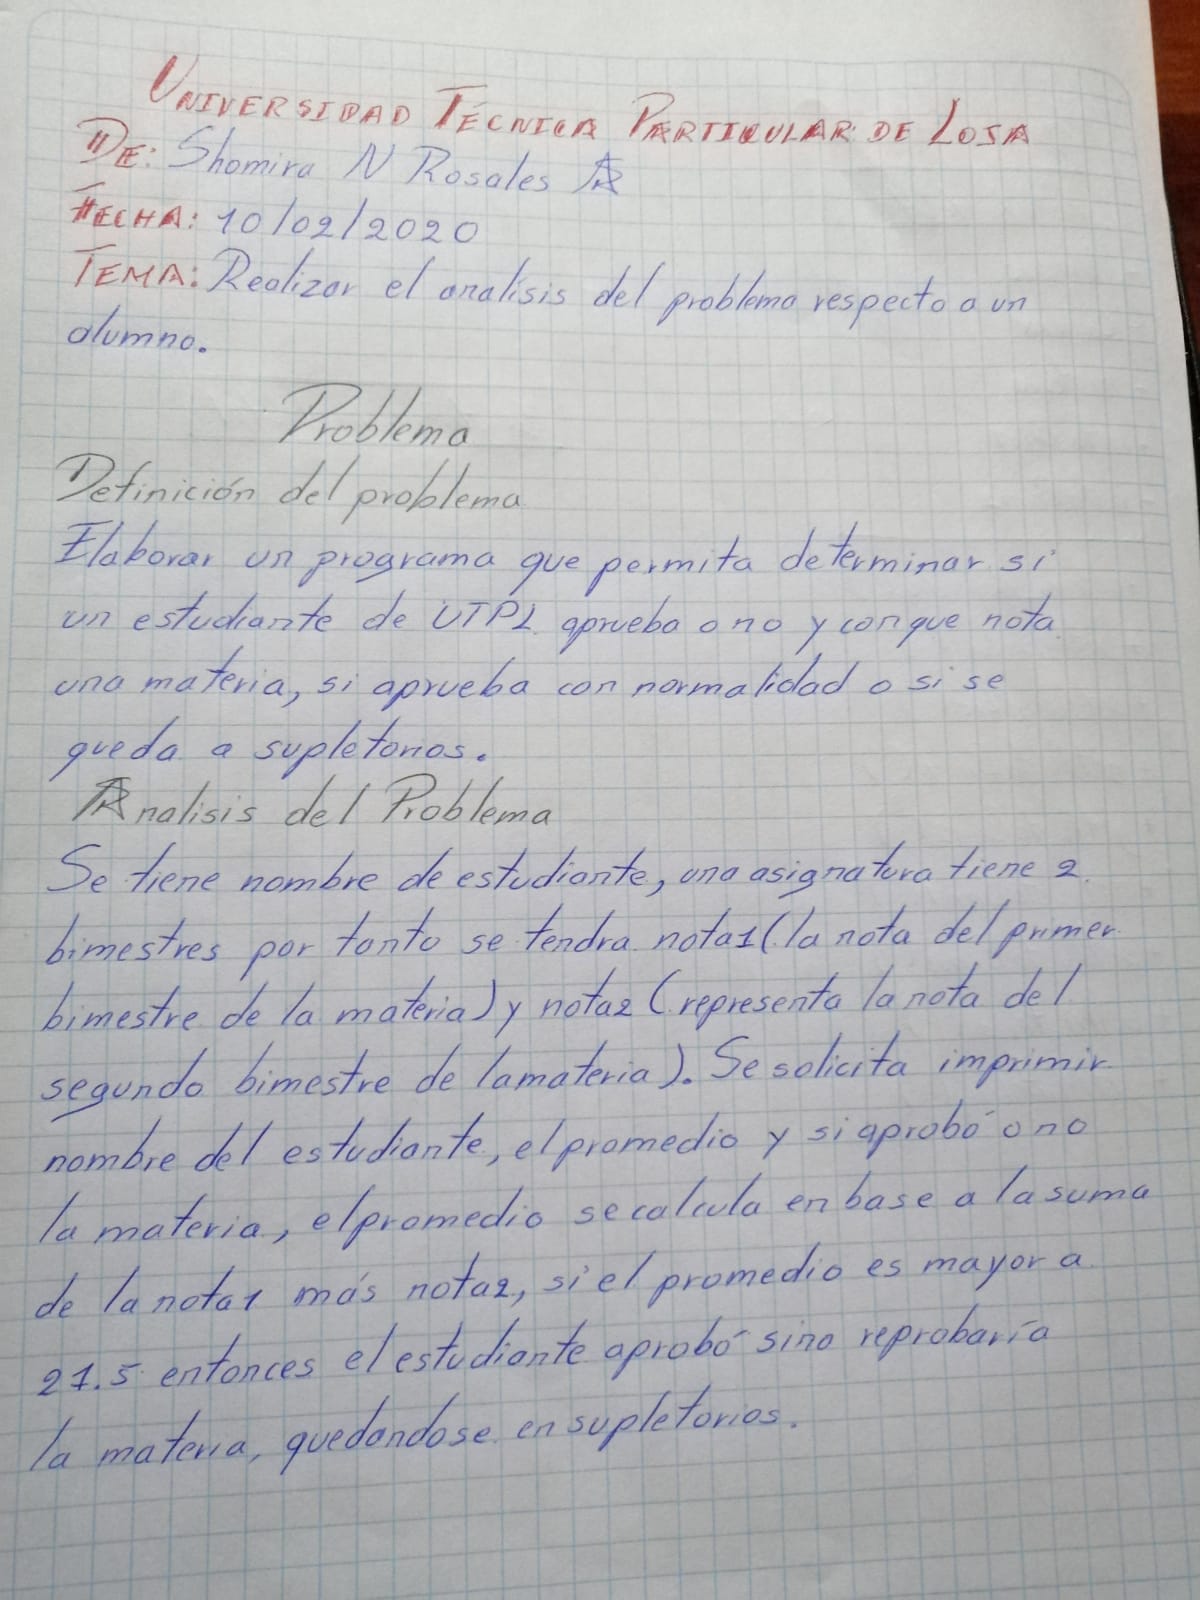 UNIVERSIDAD TECNICA PARTICULAR DE LOJA
DE: Shomira N Rosales R
FECHA: 10/02/2020
TEMA: Realizar el analisis del problema respecto a un
alumno.
Problema
Definición del problema
Elaborar un programa que permita determinar si
un estudiante de UTPL aprueba o no y con que nota
una materia, si aprueba con normalidad o si se
queda a supletorios.
Analisis del Problema
Se tiene nombre de estudiante, una asignatura tiene 2
bimestres por tanto se tendra nota1 (la nota del primer
bimestre de la materia) y nota2 (representa la nota del
segundo bimestre de la materia). Se solicita imprimir
nombre del estudiante, el promedio y si aprobó o no
la materia, el promedio se calcula en base a la suma
de la nota1 más nota2, si el promedio es mayor a
27.5 entonces el estudiante aprobó sino reprobaría
la materia, quedandose en supletorios.